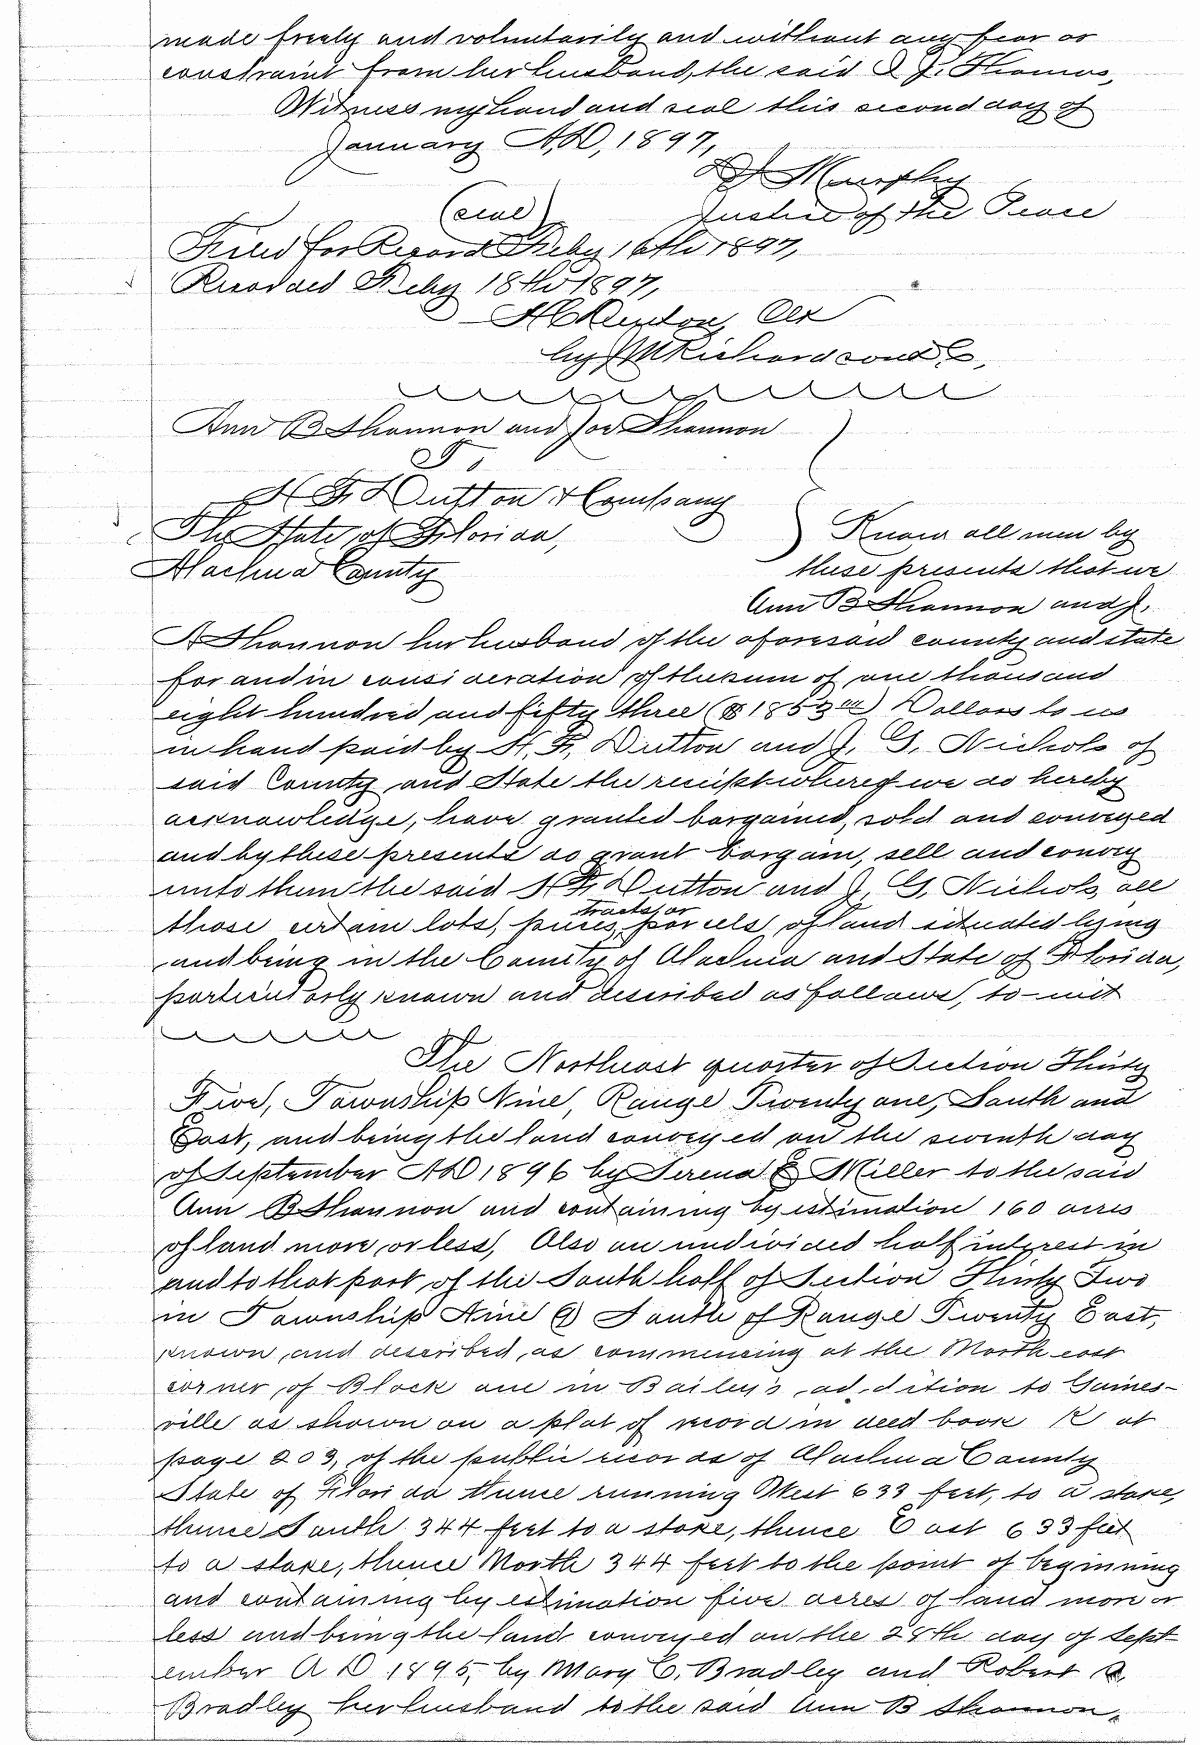 made freely and voluntarily and without any fear or
constraint from her husband, the said J. Thomas,
Witness my hand and seal this second day of
January A.D, 1897,
Murphy
(seal) Justice of the Peace
Filed for Record Feby 16th 1897,
Recorded Feby 18th 1897,
Clk
by Richardson D.C.
Ann B Shannon and Joe Shannon
To
H. F. Dutton & Company
The State of Florida,
Alachua County
Know all men by
these presents that we
Ann B Shannon and J.
A Shannon her husband of the aforesaid county and state
for and in consideration of the sum of one thousand
eight hundred and fifty three ($1853 00) Dollars to us
in hand paid by H. F. Dutton and J. G. Nichols of
said County and State the receipt whereof we do hereby
acknowledge, have granted bargained, sold and conveyed
and by these presents do grant bargain, sell and convey
unto them the said H F. Dutton and J, G. Nichols, all
those certain lots, pieces, tracts, or parcels, of land situated lying
and being in the County of Alachua and State of Florida,
particularly known and described as follows, to-wit
The Northeast quarter of Section Thirty
Five, Township Nine, Range Twenty one, South and
East, and being the land conveyed on the seventh day
of September AD 1896 by Serena E Miller to the said
Ann B Shannon and containing by estimation 160 acres
of land more or less, Also an undivided half interest in
and to that part of the South half of Section Thirty Two
in Township Nine 9 South of Range Twenty East,
known and described as commencing at the North east
corner of Block one in Bailey's addition to Gaines-
ville as shown on a plat of record in deed book K at
page 203, of the public records of Alachua County
State of Florida thence running West 633 feet, to a stake,
thence South 344 feet to a stake, thence East 633 feet
to a stake, thence North 344 feet to the point of beginning
and containing by estimation five acres of land more or
less and being the land conveyed on the 28th day of Sept
ember A D 1895, by Mary C. Bradley and Robert
Bradley her husband to the said Ann B Shannon.